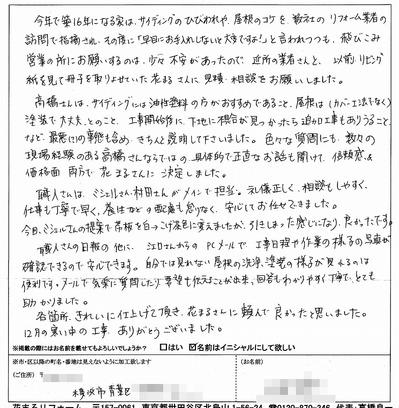 今年で築16年になる家は、サイディングのひびわれや、屋根のコケを 数社の リフォーム業者の
訪問で指摘され、その度に「早目にお手入れしないと大変ですよ!」と言われつつも、飛びこみ
営業の所にお願いするのは、少々不安があったので 近所の業者さんと、以前リビング
紙を見て冊子を取りよせていた花まるさんに 見積・相談をお願いしました。
高橋さんは、サイディングには油性塗料の方がおすすめであること、屋根は(カバー工法でなく)
塗装で大丈夫とのこと、工事開始後に、下地に不具合が見つかったら追加工事もありうること
など、最悪の事態も含め、きちんと説明して下さいました。色々な質問にも、数々の
現場経験のある高橋さんならではの具体的で正直なお話も聞けて、信頼感&
価格面 両方で 花まるさんに 決定しました。
職人さんは、ミシェルさん・村田さんがメインで担当。礼儀正しく、相談もしやすく、
仕事も丁寧で早く、養生などの配慮も怠りなく、安心してお任せできました。
今日、ミシェルさんの提案で
職人さんの日報の他に、江口さんからの PCメールで 工事日程や作業の様子の写真が
確認できるので安心できます。自分では見れない屋根の洗浄、塗装の様子が見えるのは
便利です。メールで気楽に質問したり要望も伝えることが出来、回答もわかりやすく丁寧で、とても
助かりました。
各箇所、きれいに仕上げて頂き、花まるさんに 頼んで 良かったと思いました。
12月の寒い中の工事、ありがとうございました。
※掲載の際にはお名前を載せてもよろしいでしょうか? □はい ☑名前はイニシャルにして欲しい
※市・区以降の町名・番地は見えないように加工致します
(ご住所) 〒
(お名前)
横浜市青葉区
花まるリフォーム 〒157-0061 東京都世田谷区北烏山1-56-24 ☎0120-870-246 代表:高橋良一